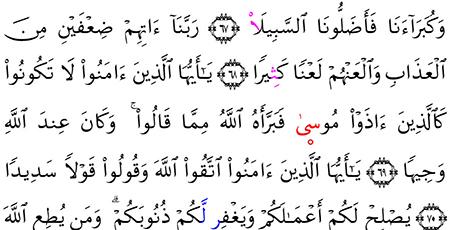 وَكُبَرَآءَنَا فَأَضَلُّونَا ٱلسَّبِيلَا۠ ﴿٦٧﴾ رَبَّنَآ ءَاتِهِمْ ضِعْفَيْنِ مِنَ
ٱلْعَذَابِ وَٱلْعَنْهُمْ لَعْنًا كَثِيرًا ﴿٦٨﴾ يَٰٓأَيُّهَا ٱلَّذِينَ ءَامَنُوا۟ لَا تَكُونُوا۟
كَٱلَّذِينَ ءَاذَوْا۟ مُوسَىٰ فَبَرَّأَهُ ٱللَّهُ مِمَّا قَالُوا۟ ۚ وَكَانَ عِندَ ٱللَّهِ
وَجِيهًا ﴿٦٩﴾ يَٰٓأَيُّهَا ٱلَّذِينَ ءَامَنُوا۟ ٱتَّقُوا۟ ٱللَّهَ وَقُولُوا۟ قَوْلًا سَدِيدًا
﴿٧٠﴾ يُصْلِحْ لَكُمْ أَعْمَٰلَكُمْ وَيَغْفِر لَّكُمْ ذُنُوبَكُمْ ۗ وَمَن يُطِعِ ٱللَّهَ